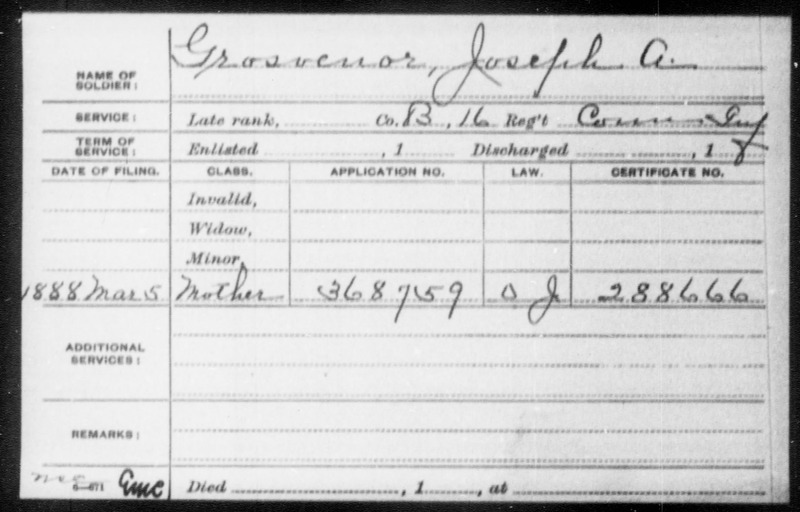 Grosvenor, Joseph A.
NAME OF SOLDIER:
SERVICE: Late rank, Co. B, 16 Reg't Conn. Inf
TERM OF SERVICE: Enlisted , 1 Discharged , 1
DATE OF FILING. CLASS. APPLICATION NO. LAW. CERTIFICATE NO.
Invalid,
Widow,
Minor,
1888 Mar 5 Mother 368759 O J 288666
ADDITIONAL SERVICES:
REMARKS:
6-671 EMC Died , 1 , at